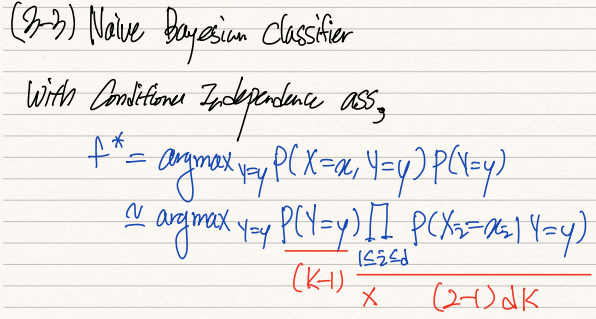 (3-3) Naive Bayesian classifier
With Conditional Independence ass,
f* = argmax Y=y P(X=x, Y=y) P(Y=y)
≃ argmax Y=y P(Y=y) ∏ 1≤i≤d P(Xi=xi | Y=y)
(K-1) x (2-1) dK